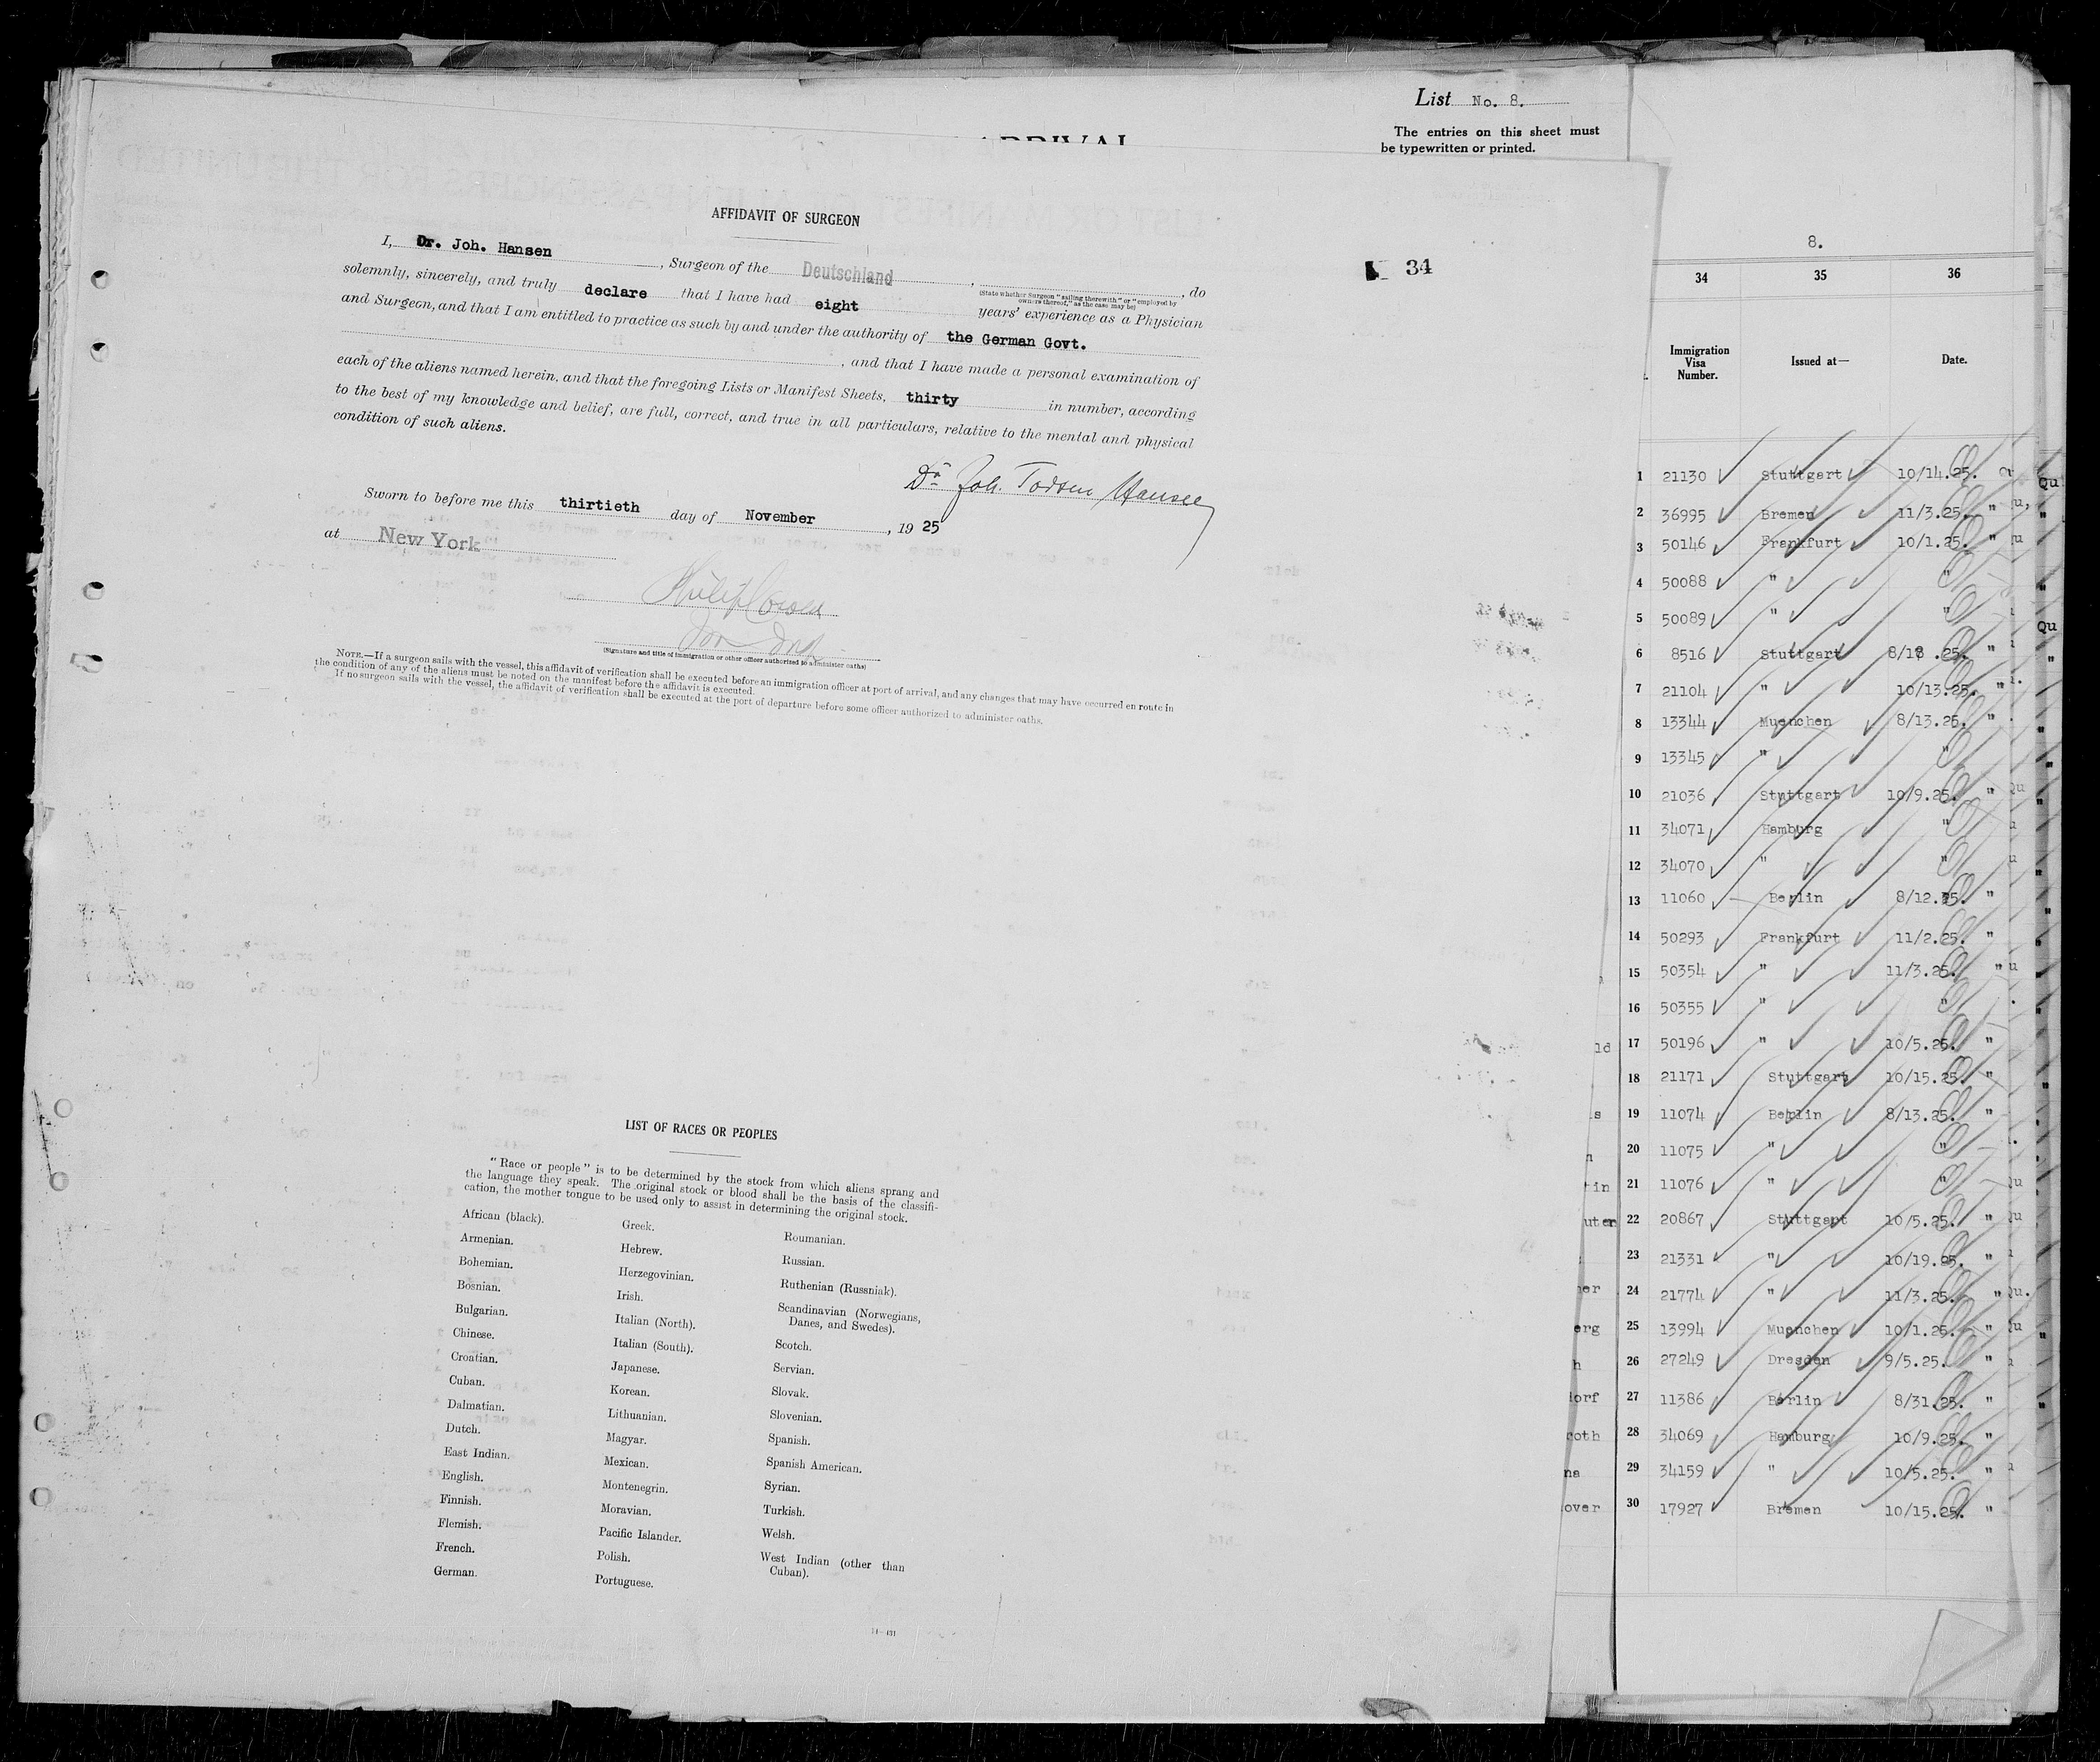 List No. 8.
The entries on this sheet must
be typewritten or printed.
AFFIDAVIT OF SURGEON
I, Dr. Joh. Hansen , Surgeon of the Deutschland , , do
(State whether Surgeon "sailing therewith" or "employed by
owners thereof," as the case may be)
solemnly, sincerely, and truly declare that I have had eight years' experience as a Physician
and Surgeon, and that I am entitled to practice as such by and under the authority of the German Govt.
, and that I have made a personal examination of
each of the aliens named herein, and that the foregoing Lists or Manifest Sheets, thirty in number, according
to the best of my knowledge and belief, are full, correct, and true in all particulars, relative to the mental and physical
condition of such aliens.
Dr Joh. Todsen Hansen
Sworn to before me this thirtieth day of November , 19 25
at New York
(Signature and title of immigration or other officer authorized to administer oaths)
NOTE.—If a surgeon sails with the vessel, this affidavit of verification shall be executed before an immigration officer at port of arrival, and any changes that may have occurred en route in
the condition of any of the aliens must be noted on the manifest before the affidavit is executed.
If no surgeon sails with the vessel, the affidavit of verification shall be executed at the port of departure before some officer authorized to administer oaths.
34
LIST OF RACES OR PEOPLES
"Race or people" is to be determined by the stock from which aliens sprang and
the language they speak. The original stock or blood shall be the basis of the classifi-
cation, the mother tongue to be used only to assist in determining the original stock.
African (black).
Armenian.
Bohemian.
Bosnian.
Bulgarian.
Chinese.
Croatian.
Cuban.
Dalmatian.
Dutch.
East Indian.
English.
Finnish.
Flemish.
French.
German.
Greek.
Hebrew.
Herzegovinian.
Irish.
Italian (North).
Italian (South).
Japanese.
Korean.
Lithuanian.
Magyar.
Mexican.
Montenegrin.
Moravian.
Pacific Islander.
Polish.
Portuguese.
Roumanian.
Russian.
Ruthenian (Russniak).
Scandinavian (Norwegians,
Danes, and Swedes).
Scotch.
Servian.
Slovak.
Slovenian.
Spanish.
Spanish American.
Syrian.
Turkish.
Welsh.
West Indian (other than
Cuban).
8.
34 35 36
Immigration
Visa
Number.
Issued at—
Date.
1 21130 Stuttgart 10/14.25.
2 36995 Bremen 11/3.25. "
3 50146 Frankfurt 10/1.25. "
4 50088 " "
5 50089 " "
6 8516 Stuttgart 8/18 .25. "
7 21104 " 10/13.25. "
8 13344 Muenchen 8/13.25. "
9 13345 " "
10 21036 Stuttgart 10/9.25. "
11 34071 Hamburg "
12 34070 " "
13 11060 Berlin 8/12.25. "
14 50293 Frankfurt 11/2.25. "
15 50354 " 11/3.25. "
16 50355 " "
17 50196 " 10/5.25. "
18 21171 Stuttgart 10/15.25. "
19 11074 Berlin 8/13.25. "
20 11075 " "
21 11076 " "
22 20867 Stuttgart 10/5.25. "
23 21331 " 10/19.25. "
24 21774 " 11/3.25. " Qu.
25 13994 Muenchen 10/1.25. "
26 27249 Dresden 9/5.25. "
27 11386 Berlin 8/31.25. "
28 34069 Hamburg 10/9.25. "
29 34159 " 10/5.25. "
30 17927 Bremen 10/15.25. "